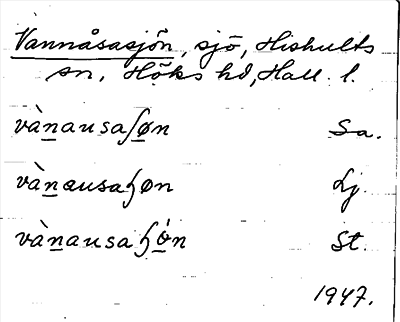 Vannåsasjön, sjö, Hishults
sn, Höks hd, Hall. l.
vànausaʃøn Sa.
vànausaɧøn Lj.
vànausaɧǿn St.
1947.